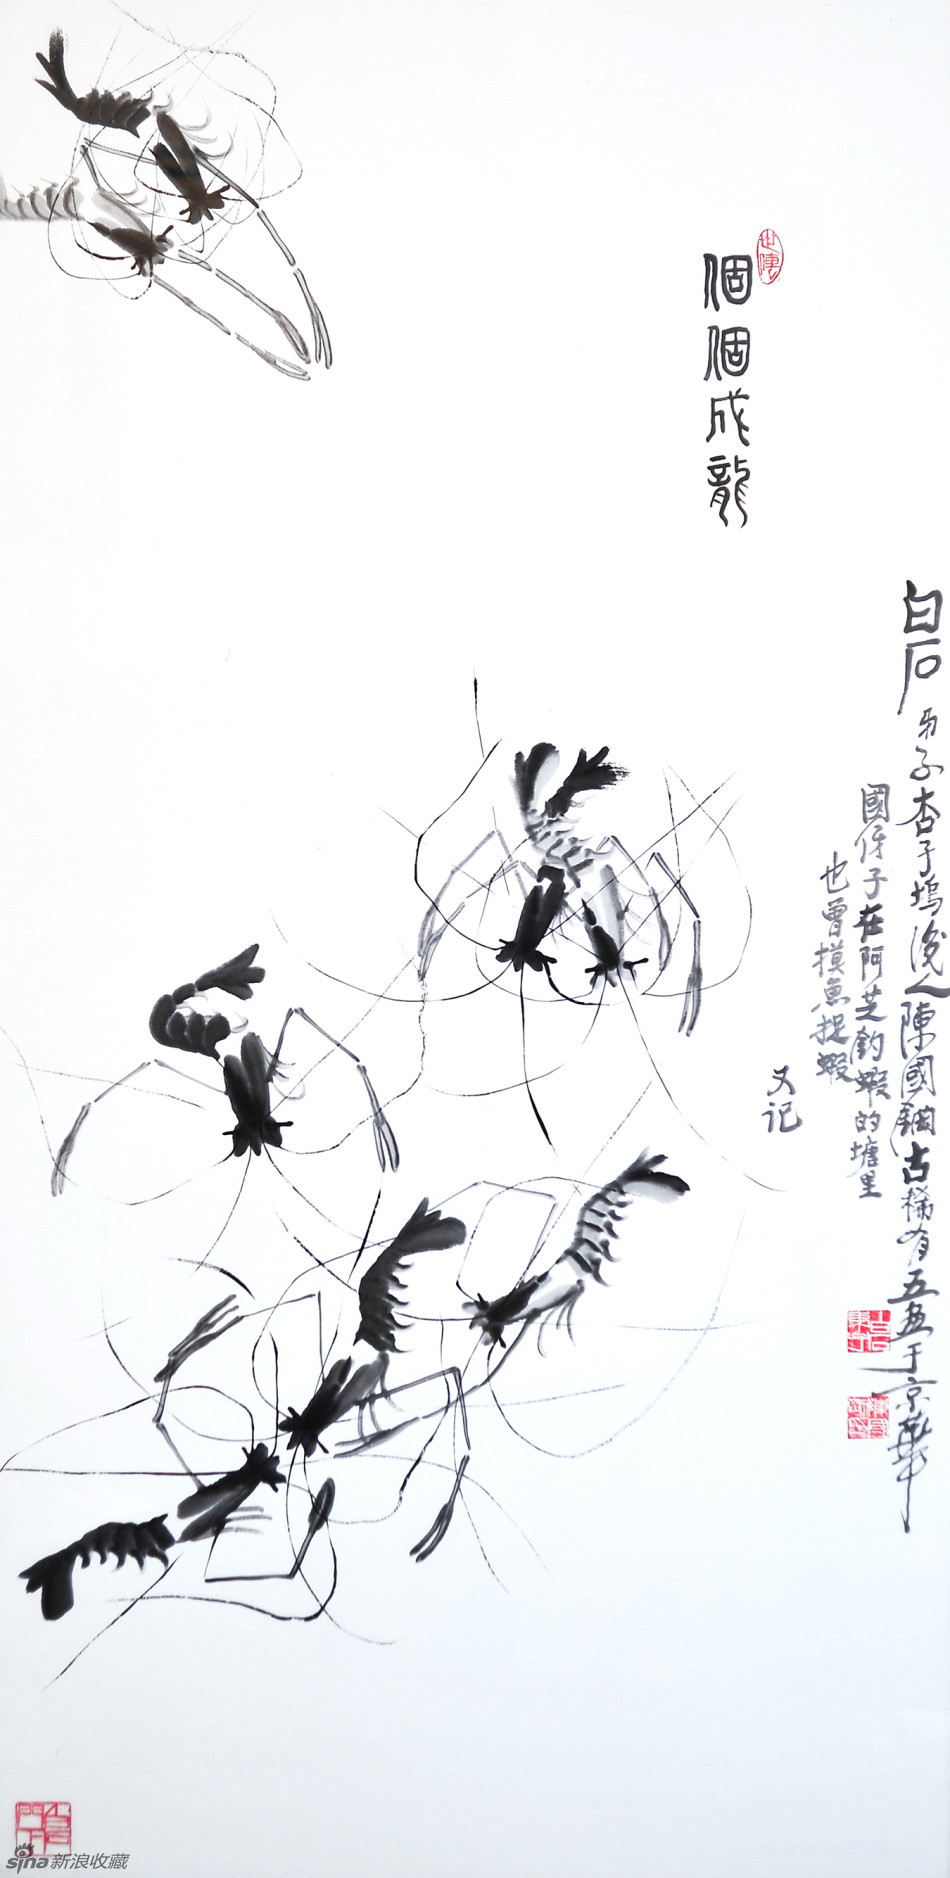 個個成龍
世傳
白石弟子杏子塢後人陳國鋼古稀有五畫于京華
國伢子在阿芝釣蝦的塘里
也曾摸魚捉蝦
又记
sina新浪收藏